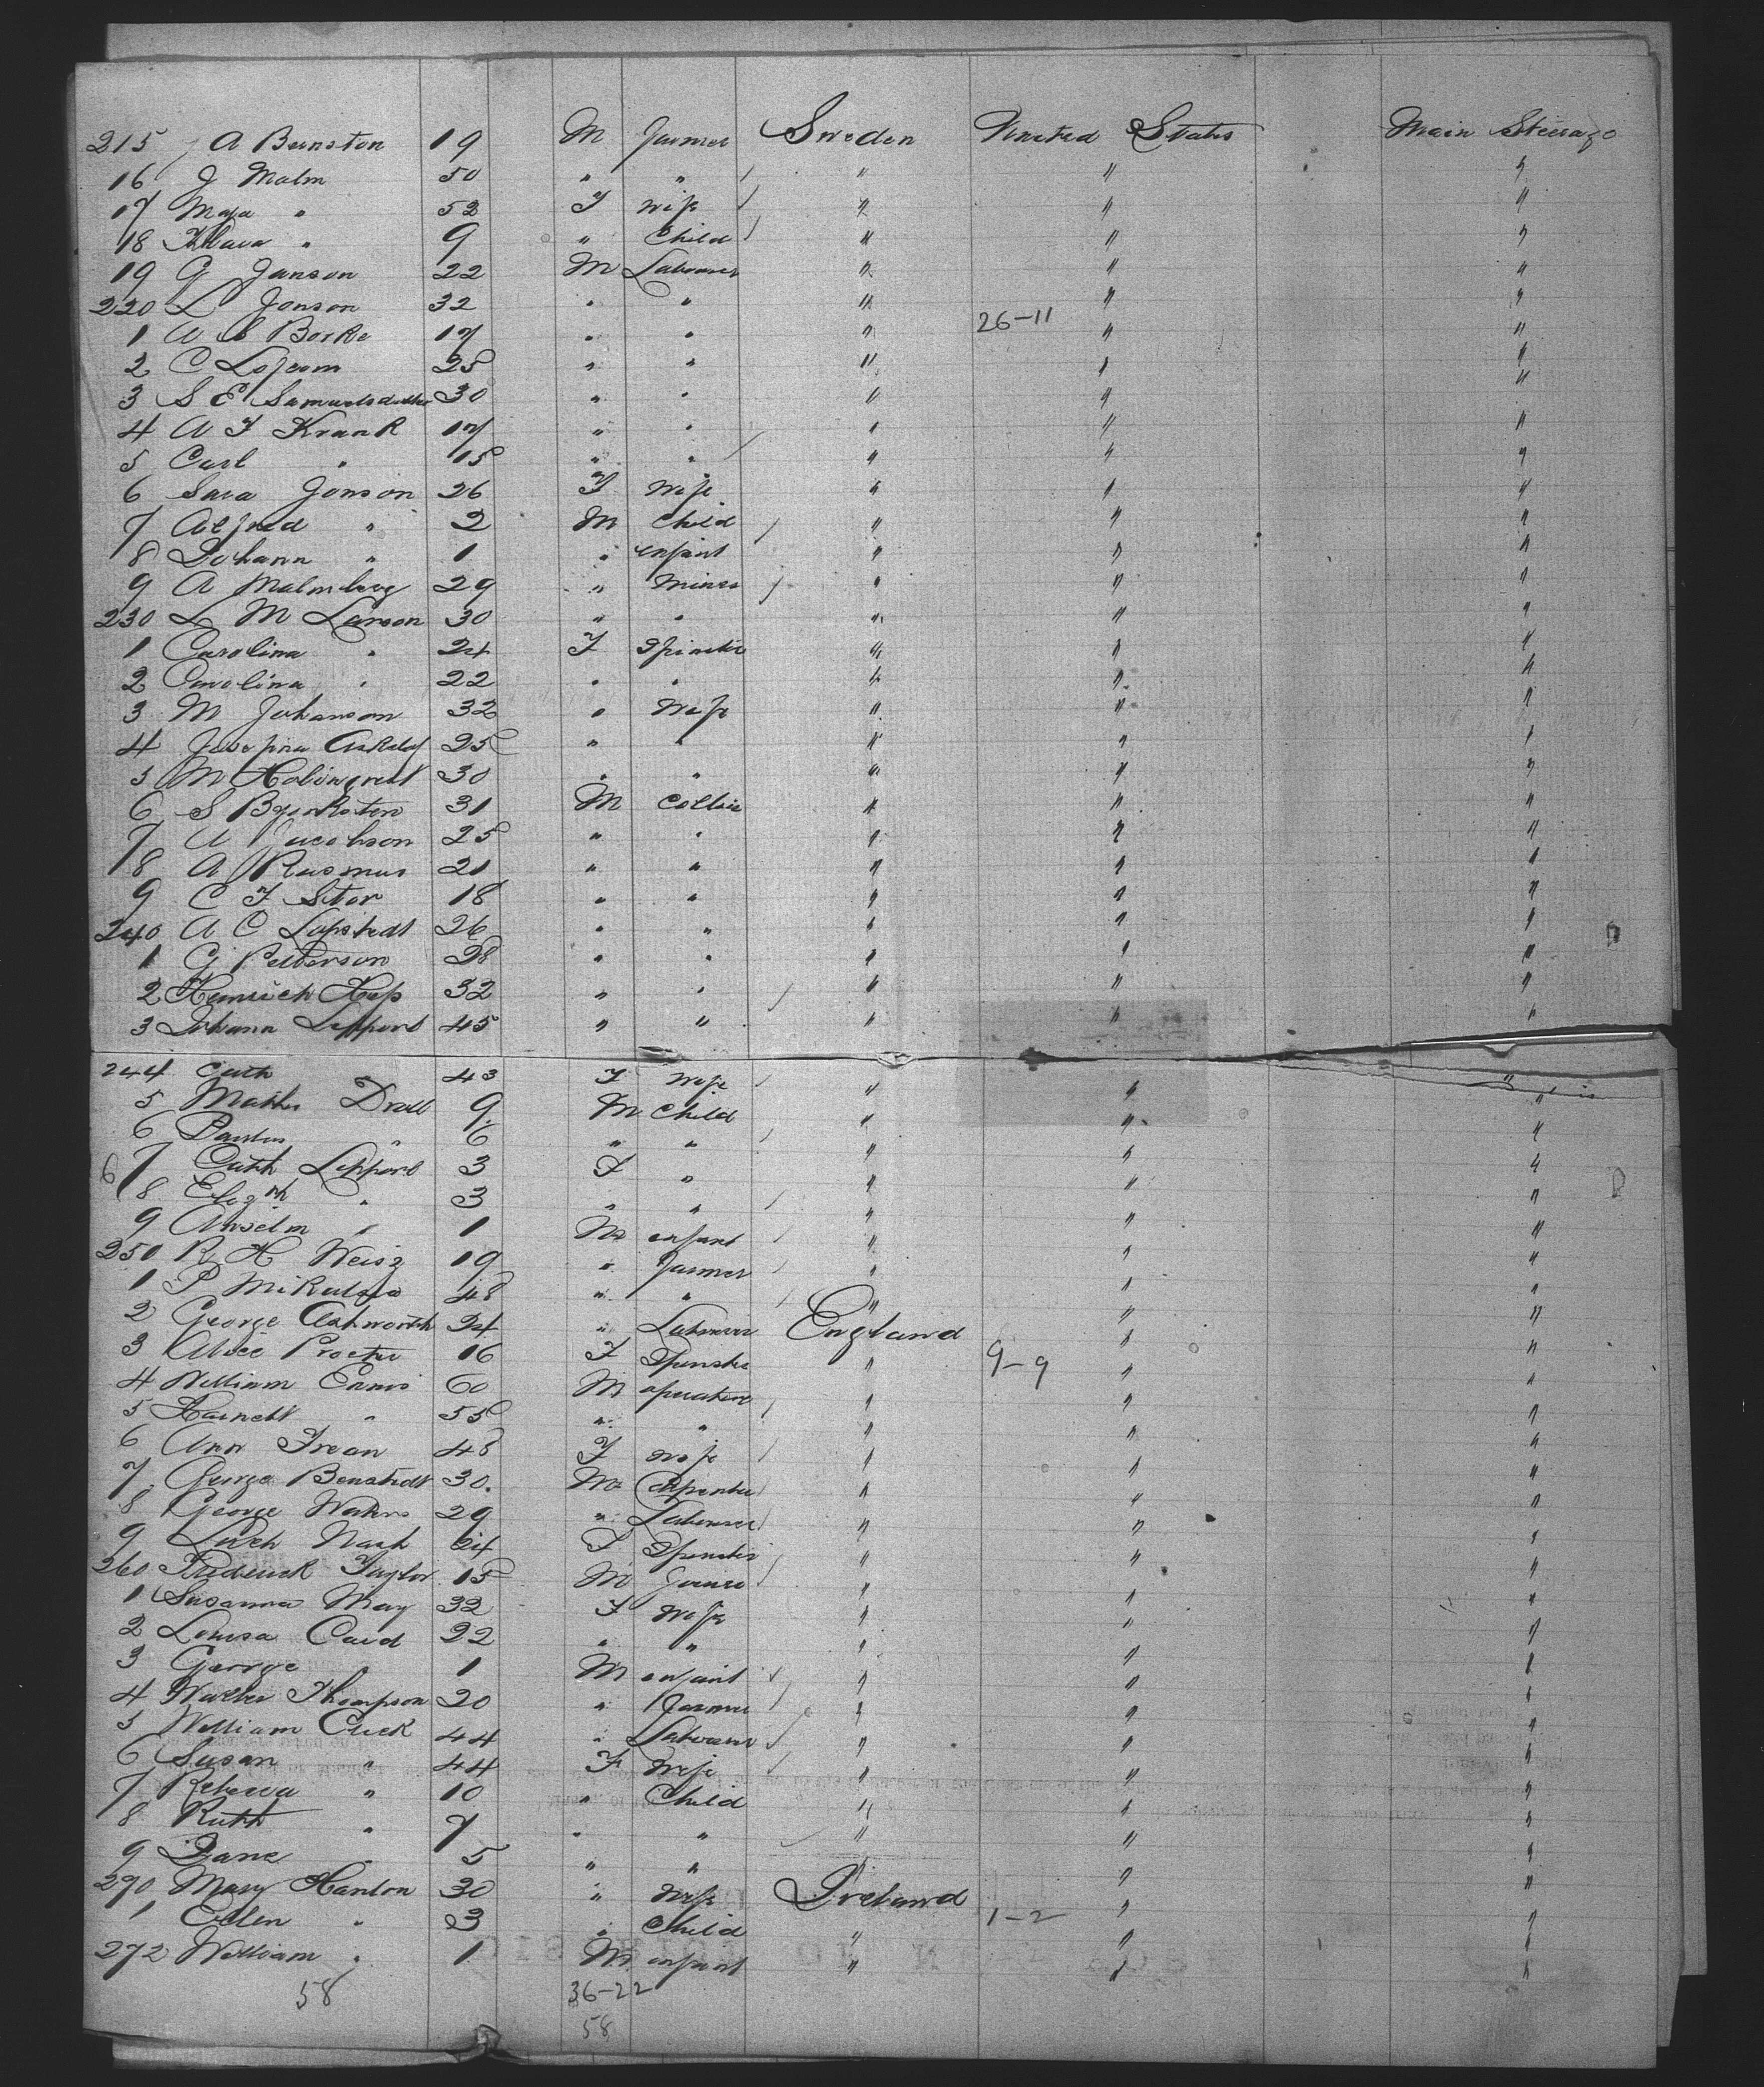 215 A Bunston 19 M Farmer Sweden United States Main Steerage
16 J Malm 50 " " " " "
17 Maja " 52 F Wife " " "
18 Klara " 9 " Child " " "
19 G Janson 22 M Labourer " " "
220 L Jonson 32 " " " " "
1 A Borke 17 " " " 26-11 " "
2 C 25 " " " " "
3 S E Samuelsdotter 30 " " " " "
4 A F Krank 17 " " " " "
5 Carl " 15 " " " " "
6 Sara Jonson 26 F Wife " " "
7 Alfred " 2 M Child " " "
8 Johann " 1 " infant " " "
9 A Malmberg 29 " Miner " " "
230 L M Larson 30 " " " " "
1 Carolina " 24 F Spinster " " "
2 Carolina " 22 " " " " "
3 M Johanson 32 " Wife " " "
4 Josefina 25 " " " " "
5 M 30 " " " " "
6 S 31 M Collier " " "
7 A Jacobson 25 " " " " "
8 A Rasmus 21 " " " " "
9 C F Stor 18 " " " " "
240 A C Lofstedt 26 " " " " "
1 G Petterson 28 " " " " "
2 Heinrich 32 " " " " "
3 Johann Leppert 45 " " " " "
244 Cath 43 F Wife " " "
5 Mathis Droll 9 M Child " " "
6 " 6 " " " " "
7 Cath Leppert 3 F " " " "
8 Elizth " 3 " " " " "
9 Anselm " 1 M infant " " "
250 R H Weisz 19 " Farmer " " "
1 P 48 " " " " "
2 George Ashworth 24 " Labourer England " "
3 Alice Procter 16 F Spinster " 9-9 " "
4 William Ennis 60 M operative " " "
5 " 55 " " " " "
6 Ann Frean 48 F Wife " " "
7 George Benstedt 30 M Carpenter " " "
8 George Waters 29 " Labourer " " "
9 Nash 24 F Spinster " " "
260 Frederick Taylor 15 M Farmer " " "
1 Susanna May 32 F Wife " " "
2 Louisa Card 22 " " " " "
3 George " 1 M infant " " "
4 Walter Thompson 20 " Farmer " " "
5 William Cuck 44 " Labourer " " "
6 Susan " 44 F Wife " " "
7 Rebecca " 10 " Child " " "
8 Ruth " 7 " " " " "
9 Jane " 5 " " " " "
270 Mary Hanlon 30 " Wife Ireland " "
1 Ellen " 3 " Child " 1-2 " "
272 William " 1 M infant " " "
58 36-22
58